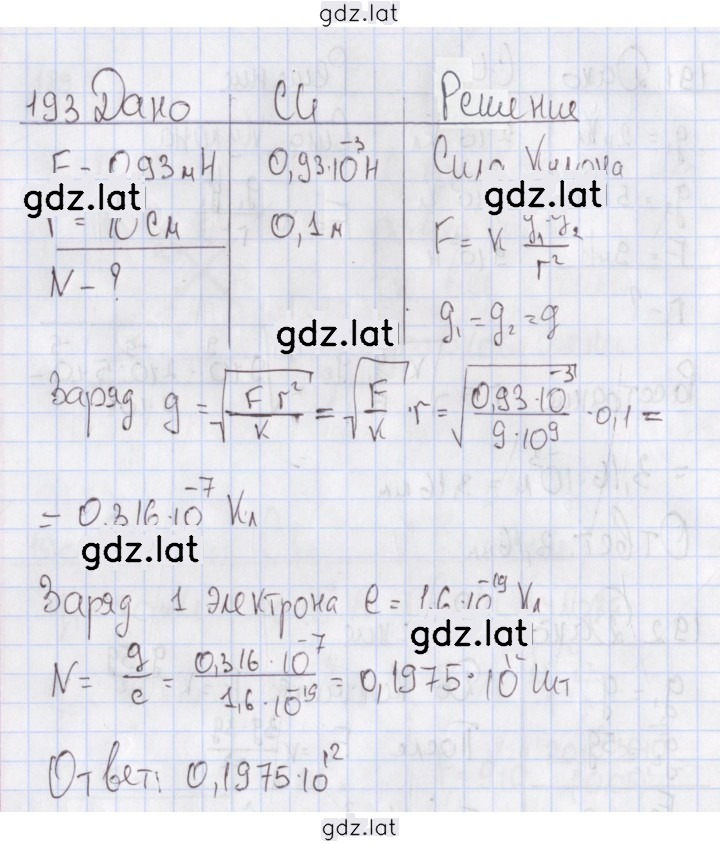 gdz.lat
193 Дано СИ Решение
F - 0,93 мН 0,93·10⁻³ Н Сила Кулона
gdz.lat gdz.lat
r = 10 см 0,1 м F = k g₁·g₂ / r²
N - ?
g₁ = g₂ = g
gdz.lat
Заряд g = √(F r² / k) = √(F / k) · r = √(0,93·10⁻³ / 9·10⁹) · 0,1 =
= 0,316·10⁻⁷ Кл
gdz.lat
Заряд 1 электрона e = 1,6·10⁻¹⁹ Кл
gdz.lat
N = g / e = 0,316·10⁻⁷ / 1,6·10⁻¹⁹ = 0,1975·10¹² шт
Ответ: 0,1975·10¹²
gdz.lat